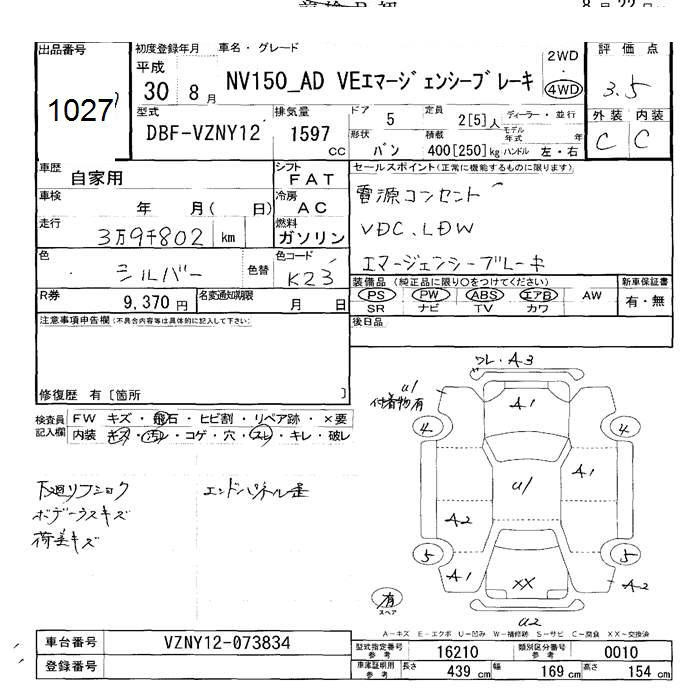 8月22
出品番号 初度登録年月 車名・グレード 評価点
1027 平成 30 8月 NV150_AD VEエマージェンシーブレーキ 2WD 4WD 3.5
型式 排気量 ドア 5 定員 2[5]人 ディーラー・並行 外装 内装
DBF-VZNY12 1597 CC 形状 バン 積載 400[250]kg モデル年式 年 ハンドル 左・右 C C
車歴 自家用 シフト FAT セールスポイント(正常に機能するものに限ります)
車検 年 月( 日) 冷房 AC 電源コンセント
走行 3万9千802 km 燃料 ガソリン VDC. LDW
色 シルバー 色替 色コード K23 エマージェンシーブレーキ
R券 9,370円 名変通知期限 月 日
装備品(純正品に限り○をつけてください) 新車保証書
PS PW ABS エアB AW 有・無
SR ナビ TV カワ
注意事項申告欄(不具合内容等は具体的に記入して下さい) 後日品
修復歴 有[箇所 ]
検査員記入欄 FW キズ・飛石・ヒビ割・リペア跡・×要
内装 キズ・汚レ・コゲ・穴・スレ・キレ・破レ
下廻リフショク エンドパネル歪
ボデーウスキズ
荷差キズ
ワレ・A3
U1
付着物有
A1
4 4
U1 A1
A2
5 5
A1 XX A2
有
スペア
U2
A-キズ E-エクボ U-凹み W-補修跡 S-サビ C-腐食 XX-交換済
車台番号 VZNY12-073834
登録番号
型式指定番号参考 16210 類別区分番号参考 0010
車庫証明用参考 長さ 439 cm 幅 169 cm 高さ 154 cm